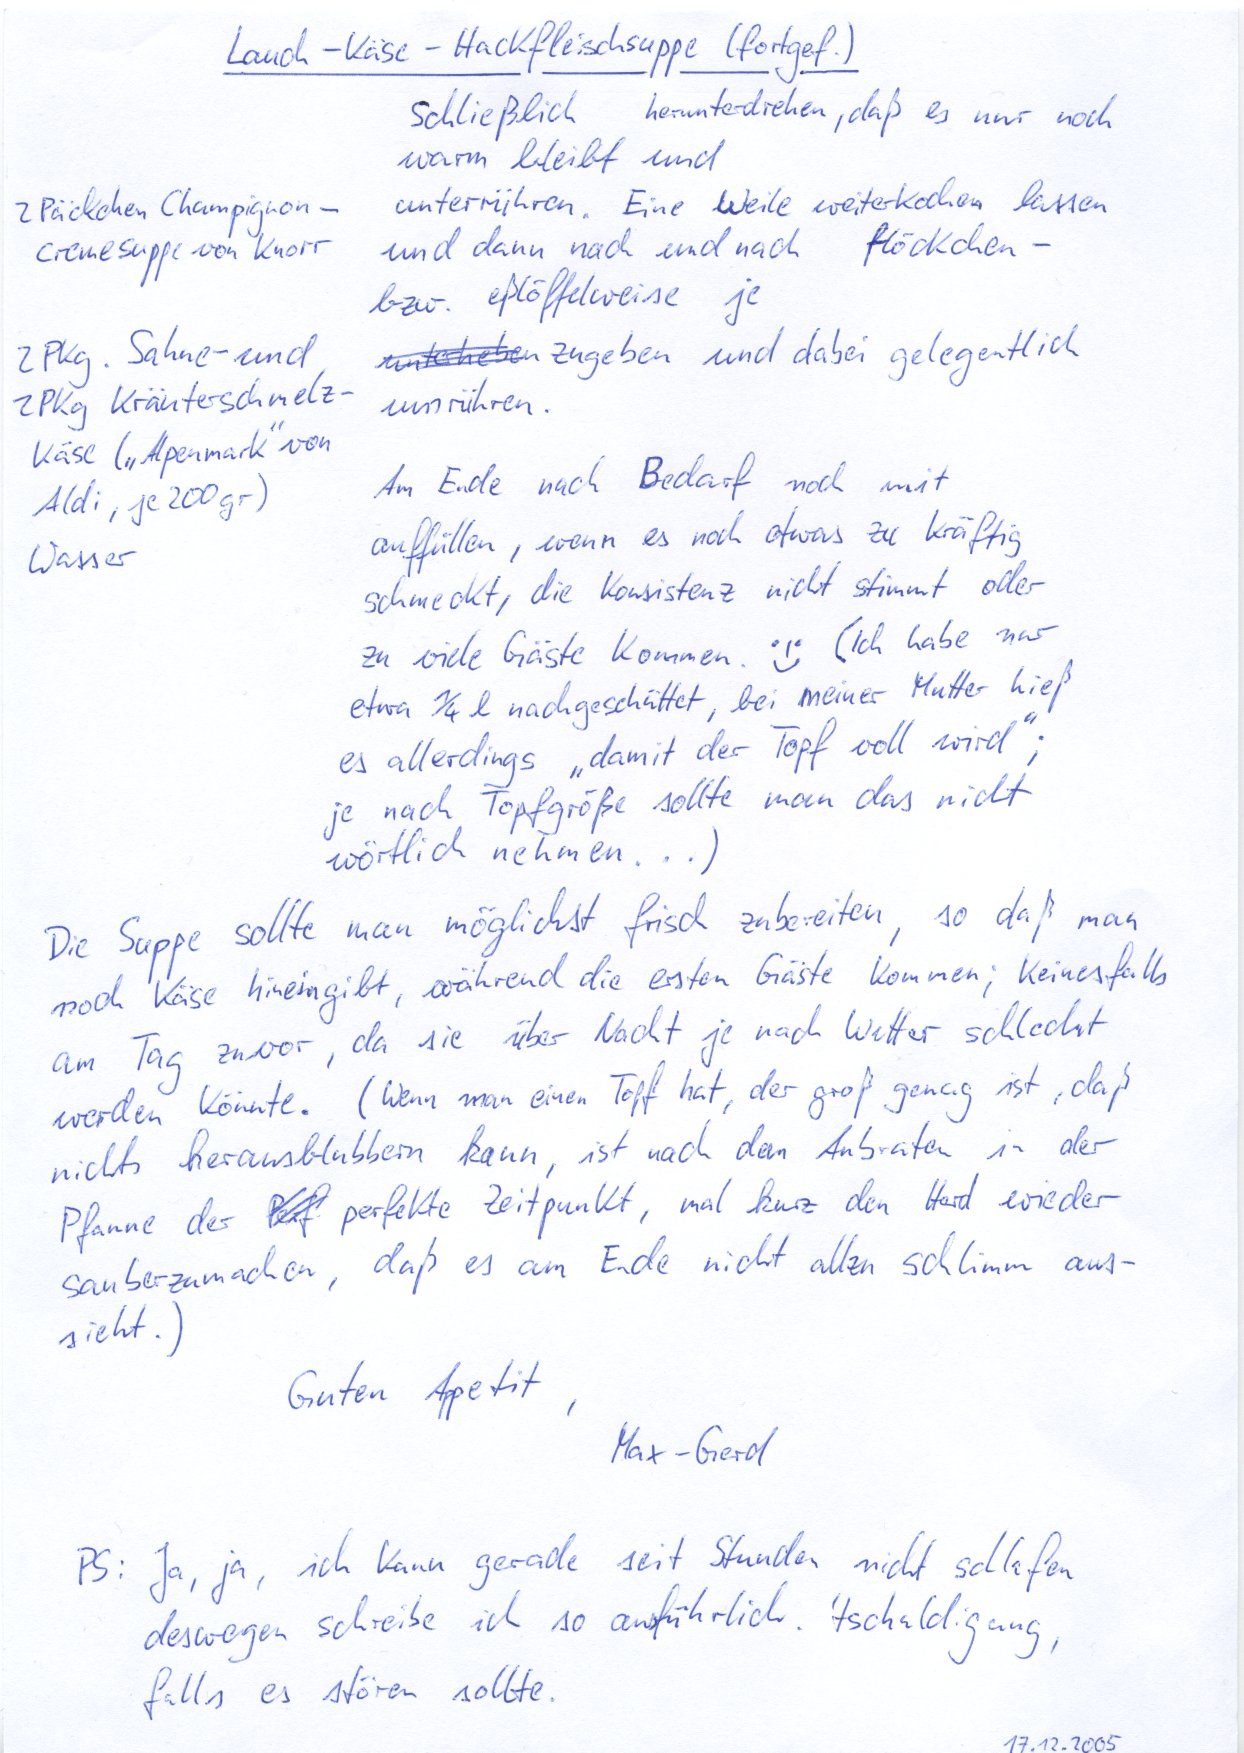 Lauch-Käse-Hackfleischsuppe (fortgef.)
Schließlich herunterdrehen, daß es nur noch
warm bleibt und
2 Päckchen Champignon-
cremesuppe von Knorr
unterrühren. Eine Weile weiterkochen lassen
und dann nach und nach flöckchen-
bzw. eßlöffelweise je
2 Pkg. Sahne- und
2 Pkg Kräuterschmelz-
käse („Alpenmark“ von
Aldi, je 200 gr)
unterheben zugeben und dabei gelegentlich
umrühren.
Am Ende nach Bedarf noch mit
Wasser
auffüllen, wenn es noch etwas zu kräftig
schmeckt, die Konsistenz nicht stimmt oder
zu viele Gäste kommen. :-) (Ich habe nur
etwa 1/4 l nachgeschüttet, bei meiner Mutter hieß
es allerdings „damit der Topf voll wird“;
je nach Topfgröße sollte man das nicht
wörtlich nehmen...)
Die Suppe sollte man möglichst frisch zubereiten, so daß man
noch Käse hineingibt, während die ersten Gäste kommen; keinesfalls
am Tag zuvor, da sie über Nacht je nach Wetter schlecht
werden könnte. (Wenn man einen Topf hat, der groß genug ist, daß
nichts herausblubbern kann, ist nach dem Anbraten in der
Pfanne der perfekte Zeitpunkt, mal kurz den Herd wieder
sauberzumachen, daß es am Ende nicht allzu schlimm aus-
sieht.)
Guten Appetit,
Max-Gerd
PS: Ja, ja, ich kann gerade seit Stunden nicht schlafen
deswegen schreibe ich so ausführlich. 'tschuldigung,
falls es stören sollte.
17.12.2005